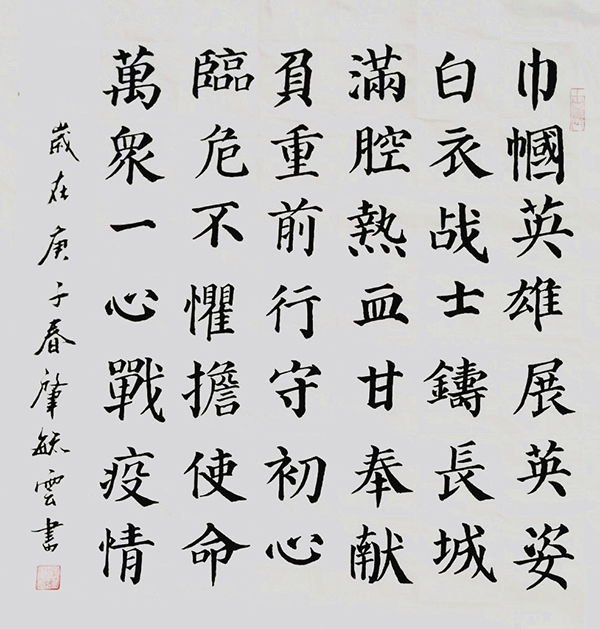 巾幗英雄展英姿
白衣战士鑄長城
滿腔熱血甘奉献
負重前行守初心
臨危不懼擔使命
萬衆一心戰疫情
歲在庚子春肇毓雲書